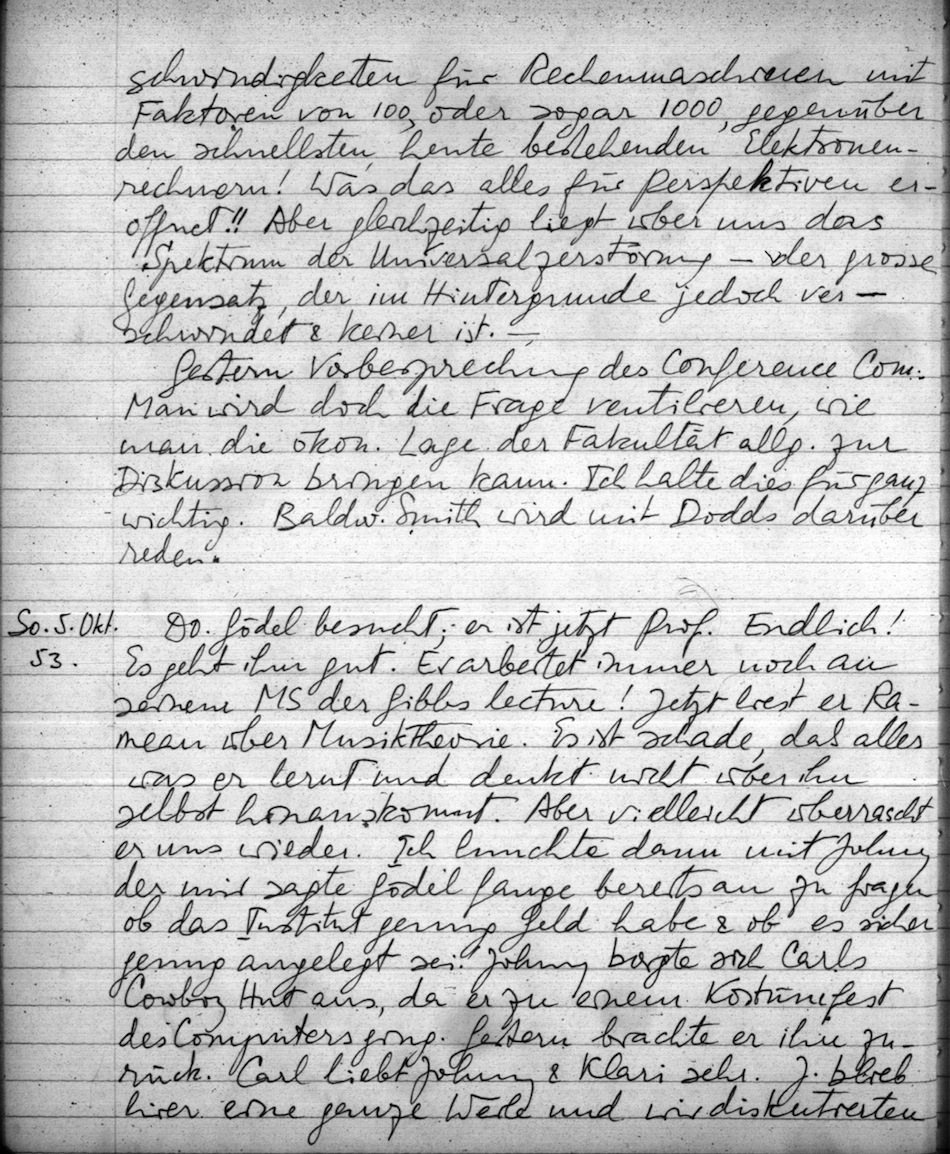 schwindigkeiten für Rechenmaschinen mit
Faktoren von 100, oder sogar 1000, gegenüber
den schnellsten, heute bestehenden Elektronen-
rechnern! Was das alles für Perspektiven er-
öffnet!! Aber gleichzeitig liegt über uns das
Spektrum der Universalzerstörung – der grosse
Gegensatz, der im Hintergrunde jedoch ver-
schwindet & keiner ist. —
Gestern Vorbesprechung des Conference Com.
Man wird doch die Frage ventilieren, wie
man die ökon. Lage der Fakultät allg. zur
Diskussion bringen kann. Ich halte dies für ganz
wichtig. Baldw. Smith wird mit Dodds darüber
reden.
So. 5. Okt.
53.
Do. Gödel besucht; er ist jetzt Prof. Endlich!
Es geht ihm gut. Er arbeitet immer noch an
seinem MS der Gibbs lecture! Jetzt liest er Ra-
meau über Musiktheorie. Es ist schade, daß alles
was er lernt und denkt nicht über ihn
selbst hinauskommt. Aber vielleicht überrascht
er uns wieder. Ich lunchte dann mit Johnny
der mir sagte Gödel fange bereits an zu fragen
ob das Institut genug Geld habe & ob es sicher
genug angelegt sei. Johnny borgte sich Carls
Cowboy Hut aus, da er zu einem Kostümfest
des Computers ging. Gestern brachte er ihn zu-
rück. Carl liebt Johnny & Klari sehr. J. blieb
hier eine ganze Weile und wir diskutierten